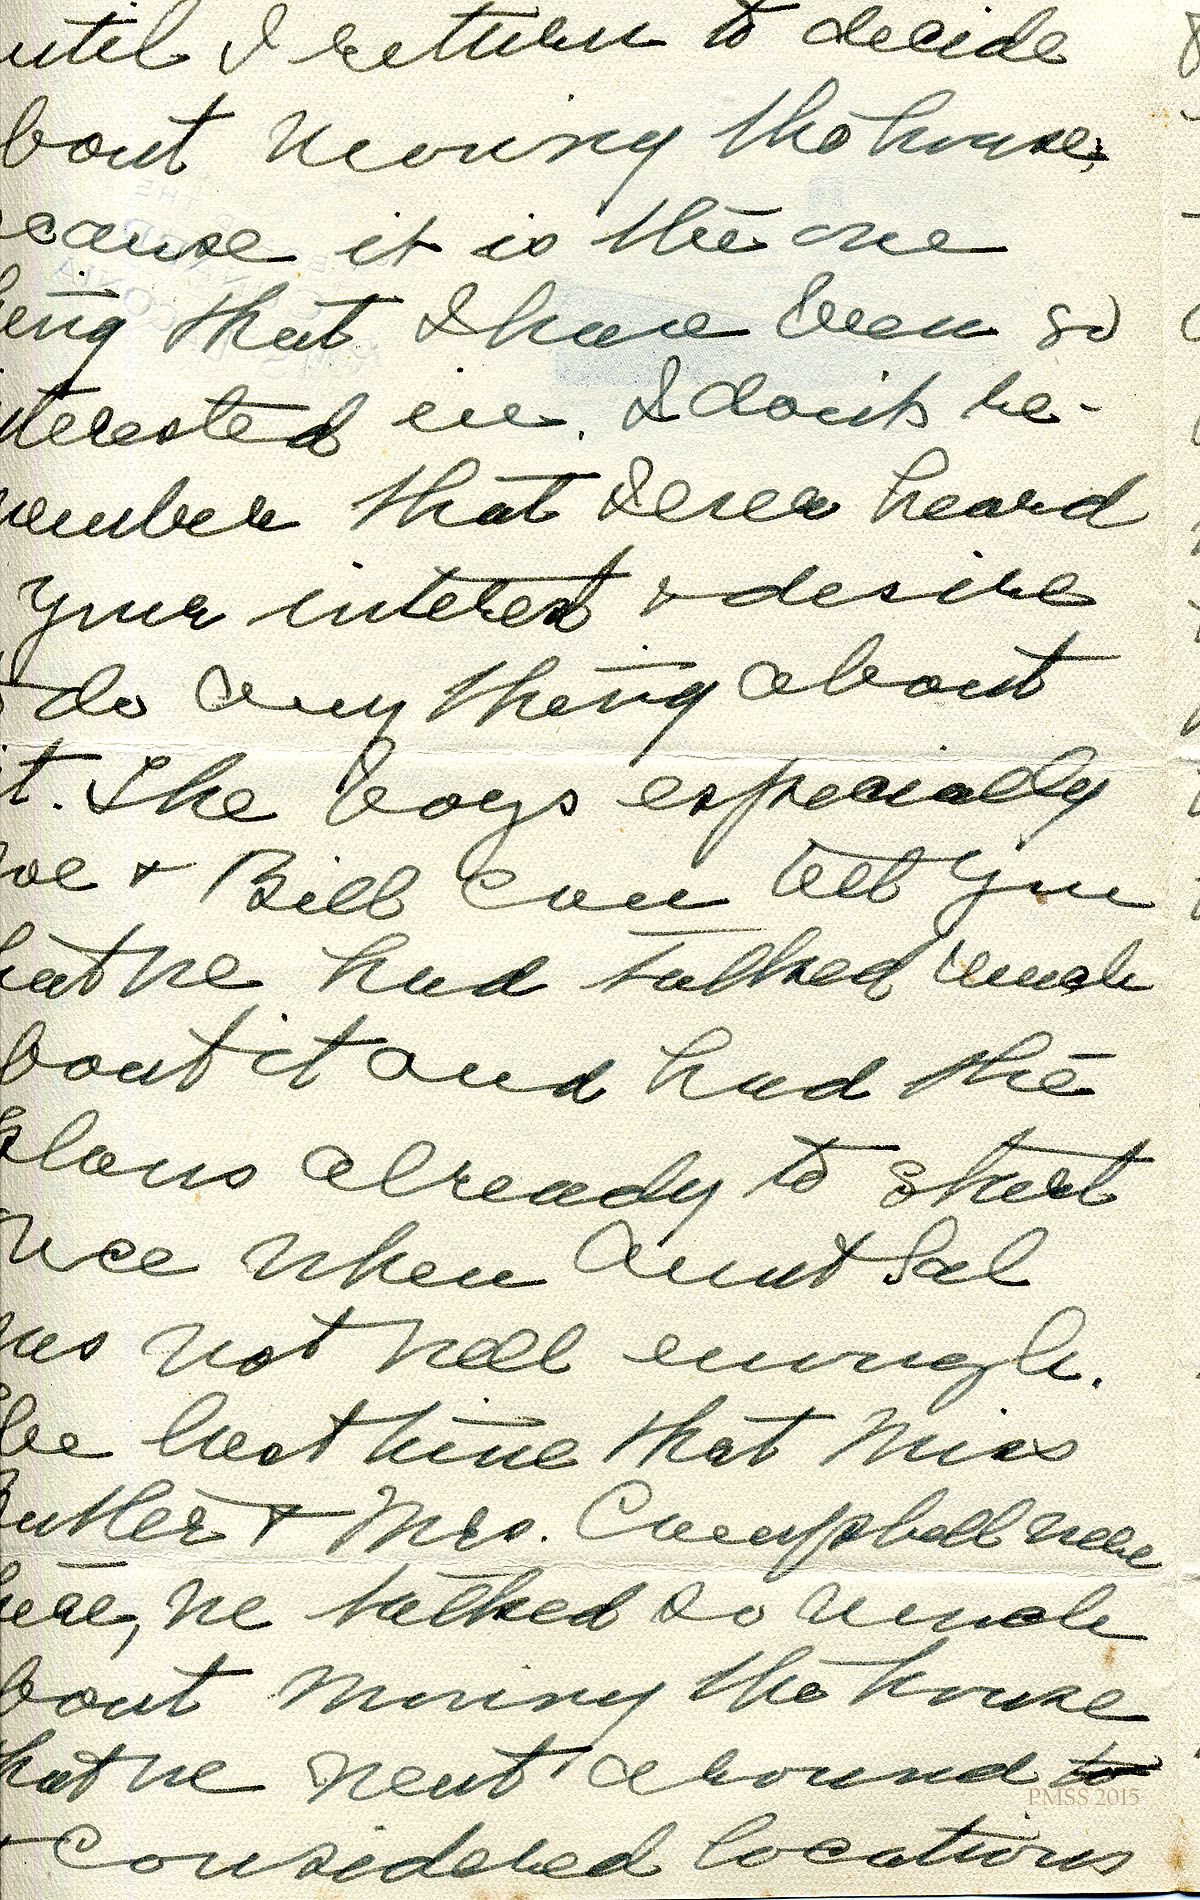 until I return to decide
bout moving the house,
ecause it is the one
hing that I have been so
nterested in. I don't re-
member that I ever heard
your interest & desire
to do any thing about
it. The boys especially
oe & Bill can tell you
hat we had talked much
bout it and had the
plans already to start
once when Aunt Sal
was not well enough.
The last time that Miss
Butler & Mrs. Campbell were
here, we talked so much
bout moving the house
that we went around to
& considered locations
PMSS 2015